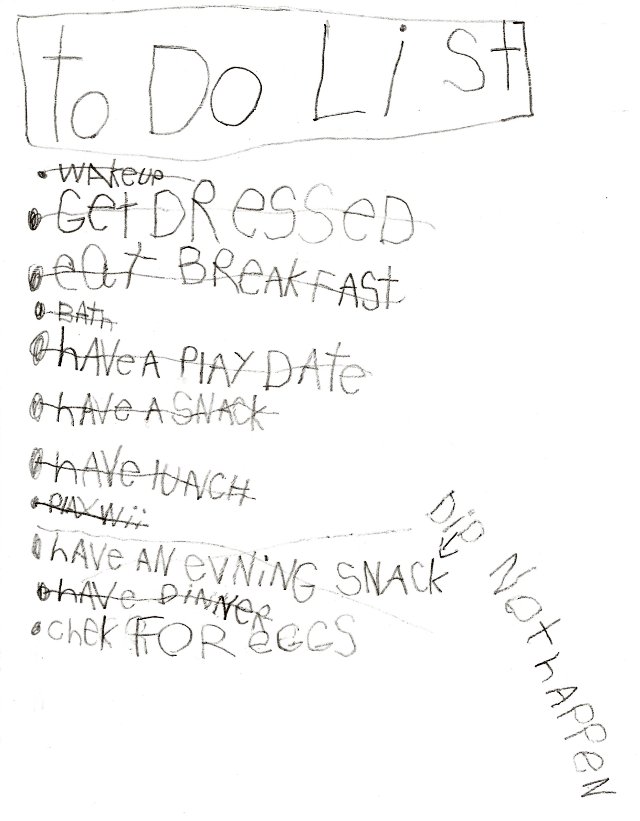 to Do List
• WAkeup
• Get DRessed
• eat BReAkFAst
• BAth
• hAve A PlAY DAte
• hAve A SNAck
• hAve luNcH
• PlAY Wii
• hAve AN evNiNG SNAck
• hAve DiNNeR
• chek FOR eGGS
DiD Not hAPPeN